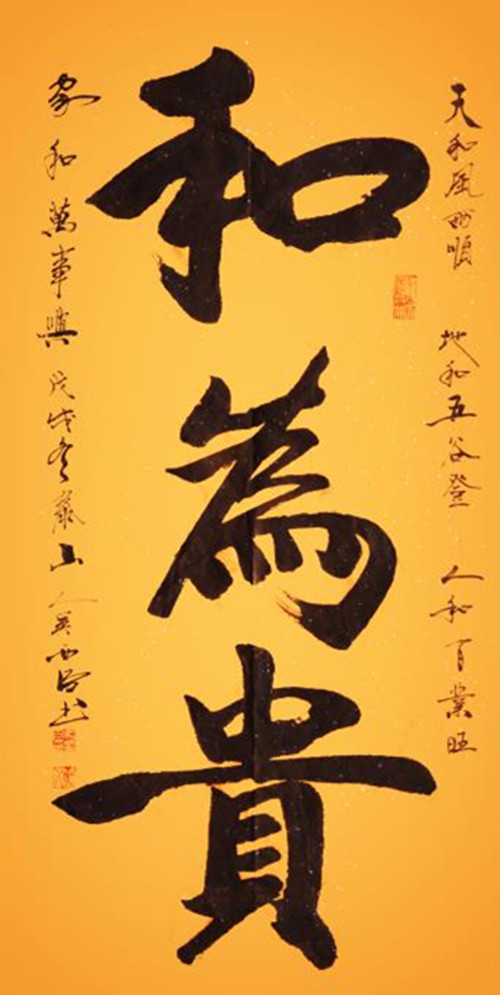 天和風雨順 地和五谷登 人和百業旺
和為貴
家和萬事興 戊戌冬 山人吴 书